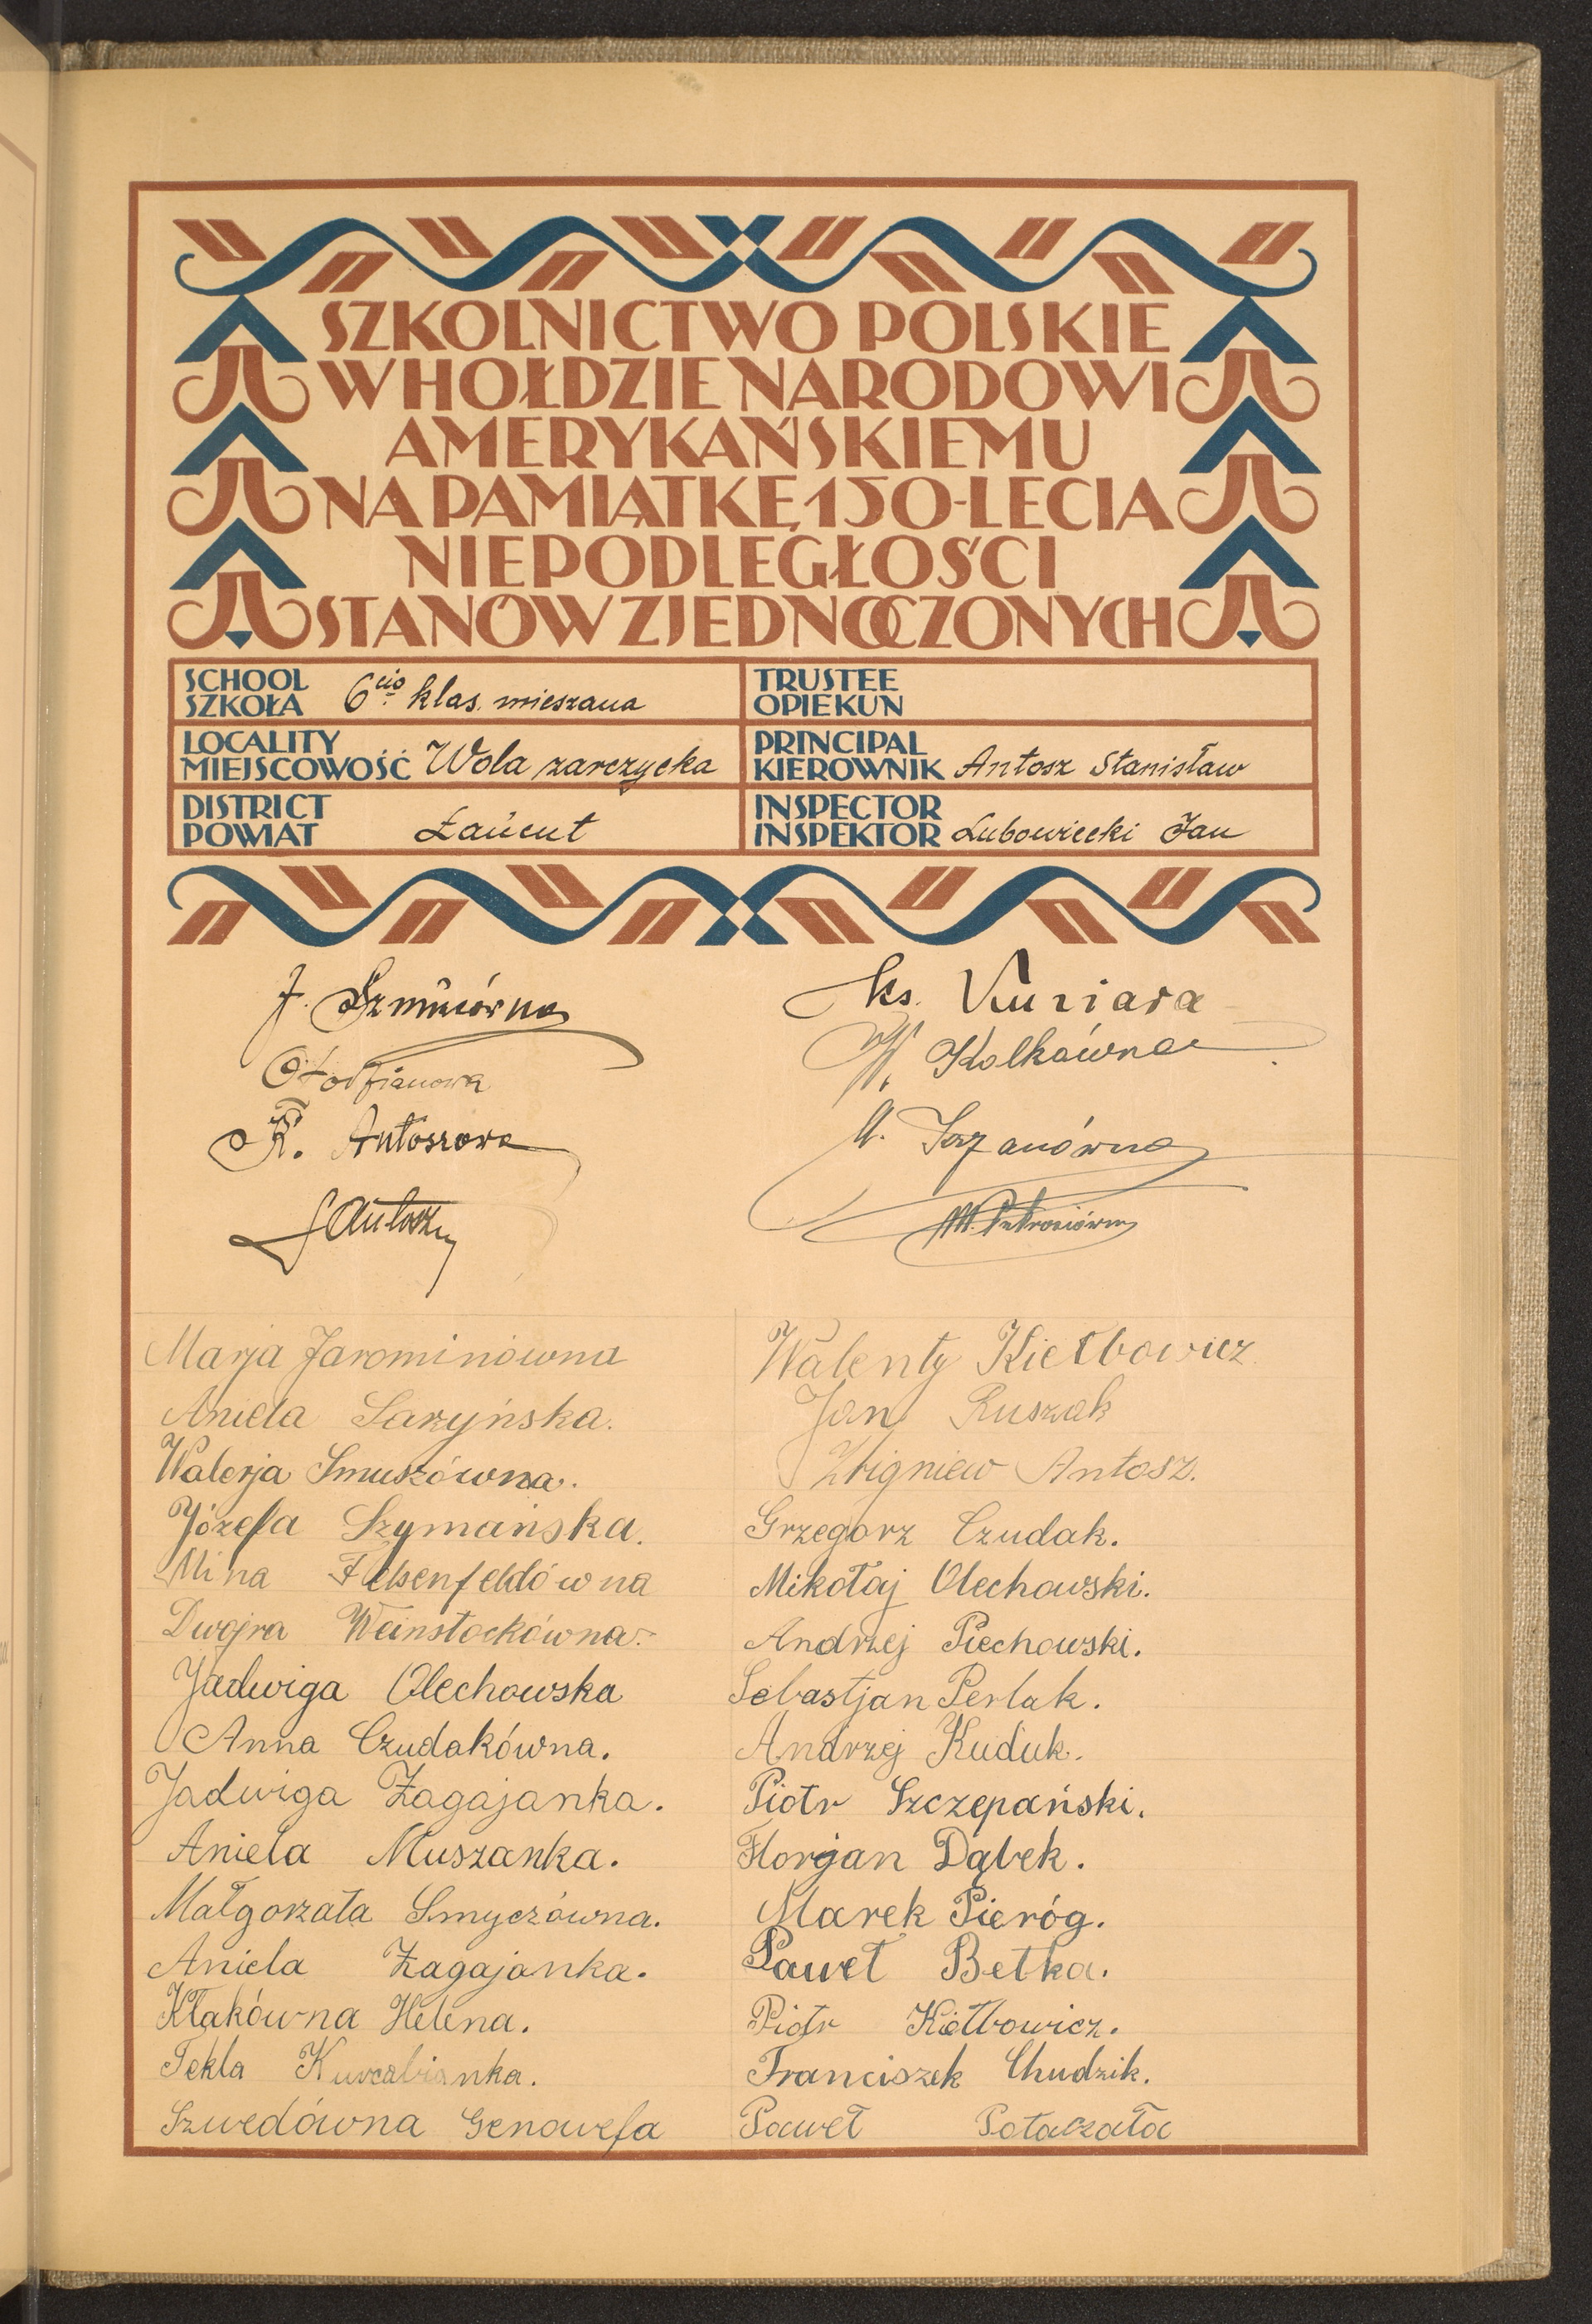 SZKOLNICTWO POLSKIE
W HOŁDZIE NARODOWI
AMERYKAŃSKIEMU
NA PAMIĄTKĘ 150-LECIA
NIEPODLEGŁOŚCI
STANÓW ZJEDNOCZONYCH
SCHOOL
SZKOŁA 6cio klas. mieszana
TRUSTEE
OPIEKUN
LOCALITY
MIEJSCOWOŚĆ Wola zarczycka
PRINCIPAL
KIEROWNIK Antosz Stanisław
DISTRICT
POWIAT Łańcut
INSPECTOR
INSPEKTOR Lubowiecki Jan
J.
Ks.
W. Kolkówna
K. Antoszowa
SAntosz
M.
Marja Jarominówna
Aniela Sarzyńska.
Walerja Smuszówna.
Józefa Szymańska.
Mina Felsenfeldówna
Dwojra Weinstockówna.
Jadwiga Olechowska
Anna Czudakówna.
Jadwiga Zagajanka.
Aniela Muszanka.
Małgorzata Smyczówna.
Aniela Zagajanka.
Kłakówna Helena.
Tekla
Szwedówna Genowefa
Walenty Kiełbowicz.
Jan Ruszak
Zbigniew Antosz.
Grzegorz Czudak.
Mikołaj Olechowski.
Andrzej Piechowski.
Sebastjan Perlak.
Andrzej Kuduk.
Piotr Szczepański.
Florjan Dąbek.
Marek Pieróg.
Paweł Betka.
Piotr Kiełbowicz.
Franciszek Chudzik.
Paweł Potaczała